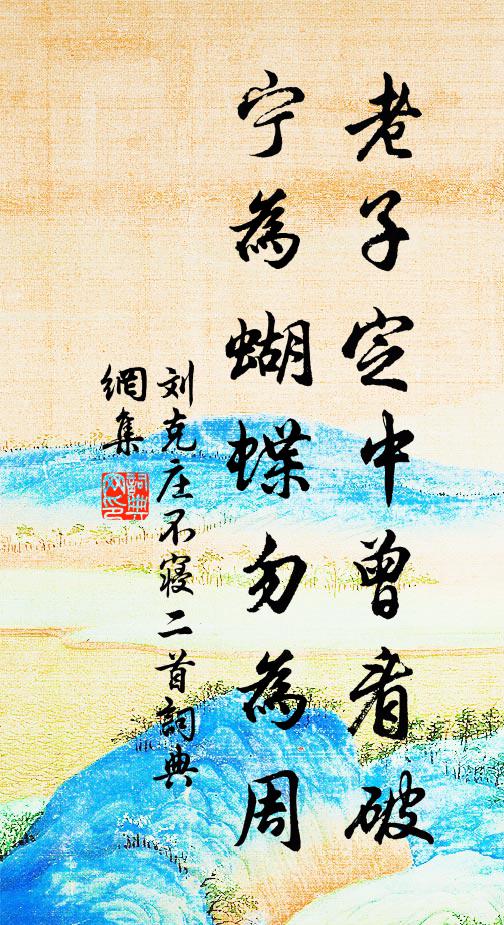 老子定中曾看破
宁為蝴蝶勿為周
刘克庄不寝二首詞典
網集
詞典